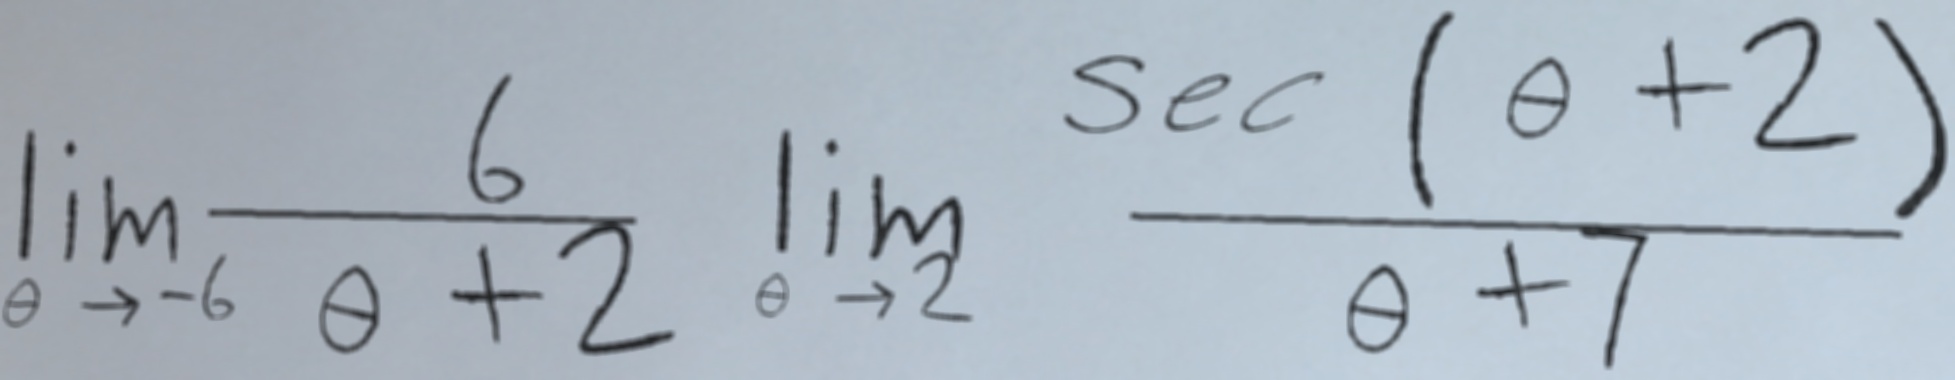 \lim_{\theta \to -6} \frac{6}{\theta + 2} \lim_{\theta \to 2} \frac{\sec(\theta + 2)}{\theta + 7}